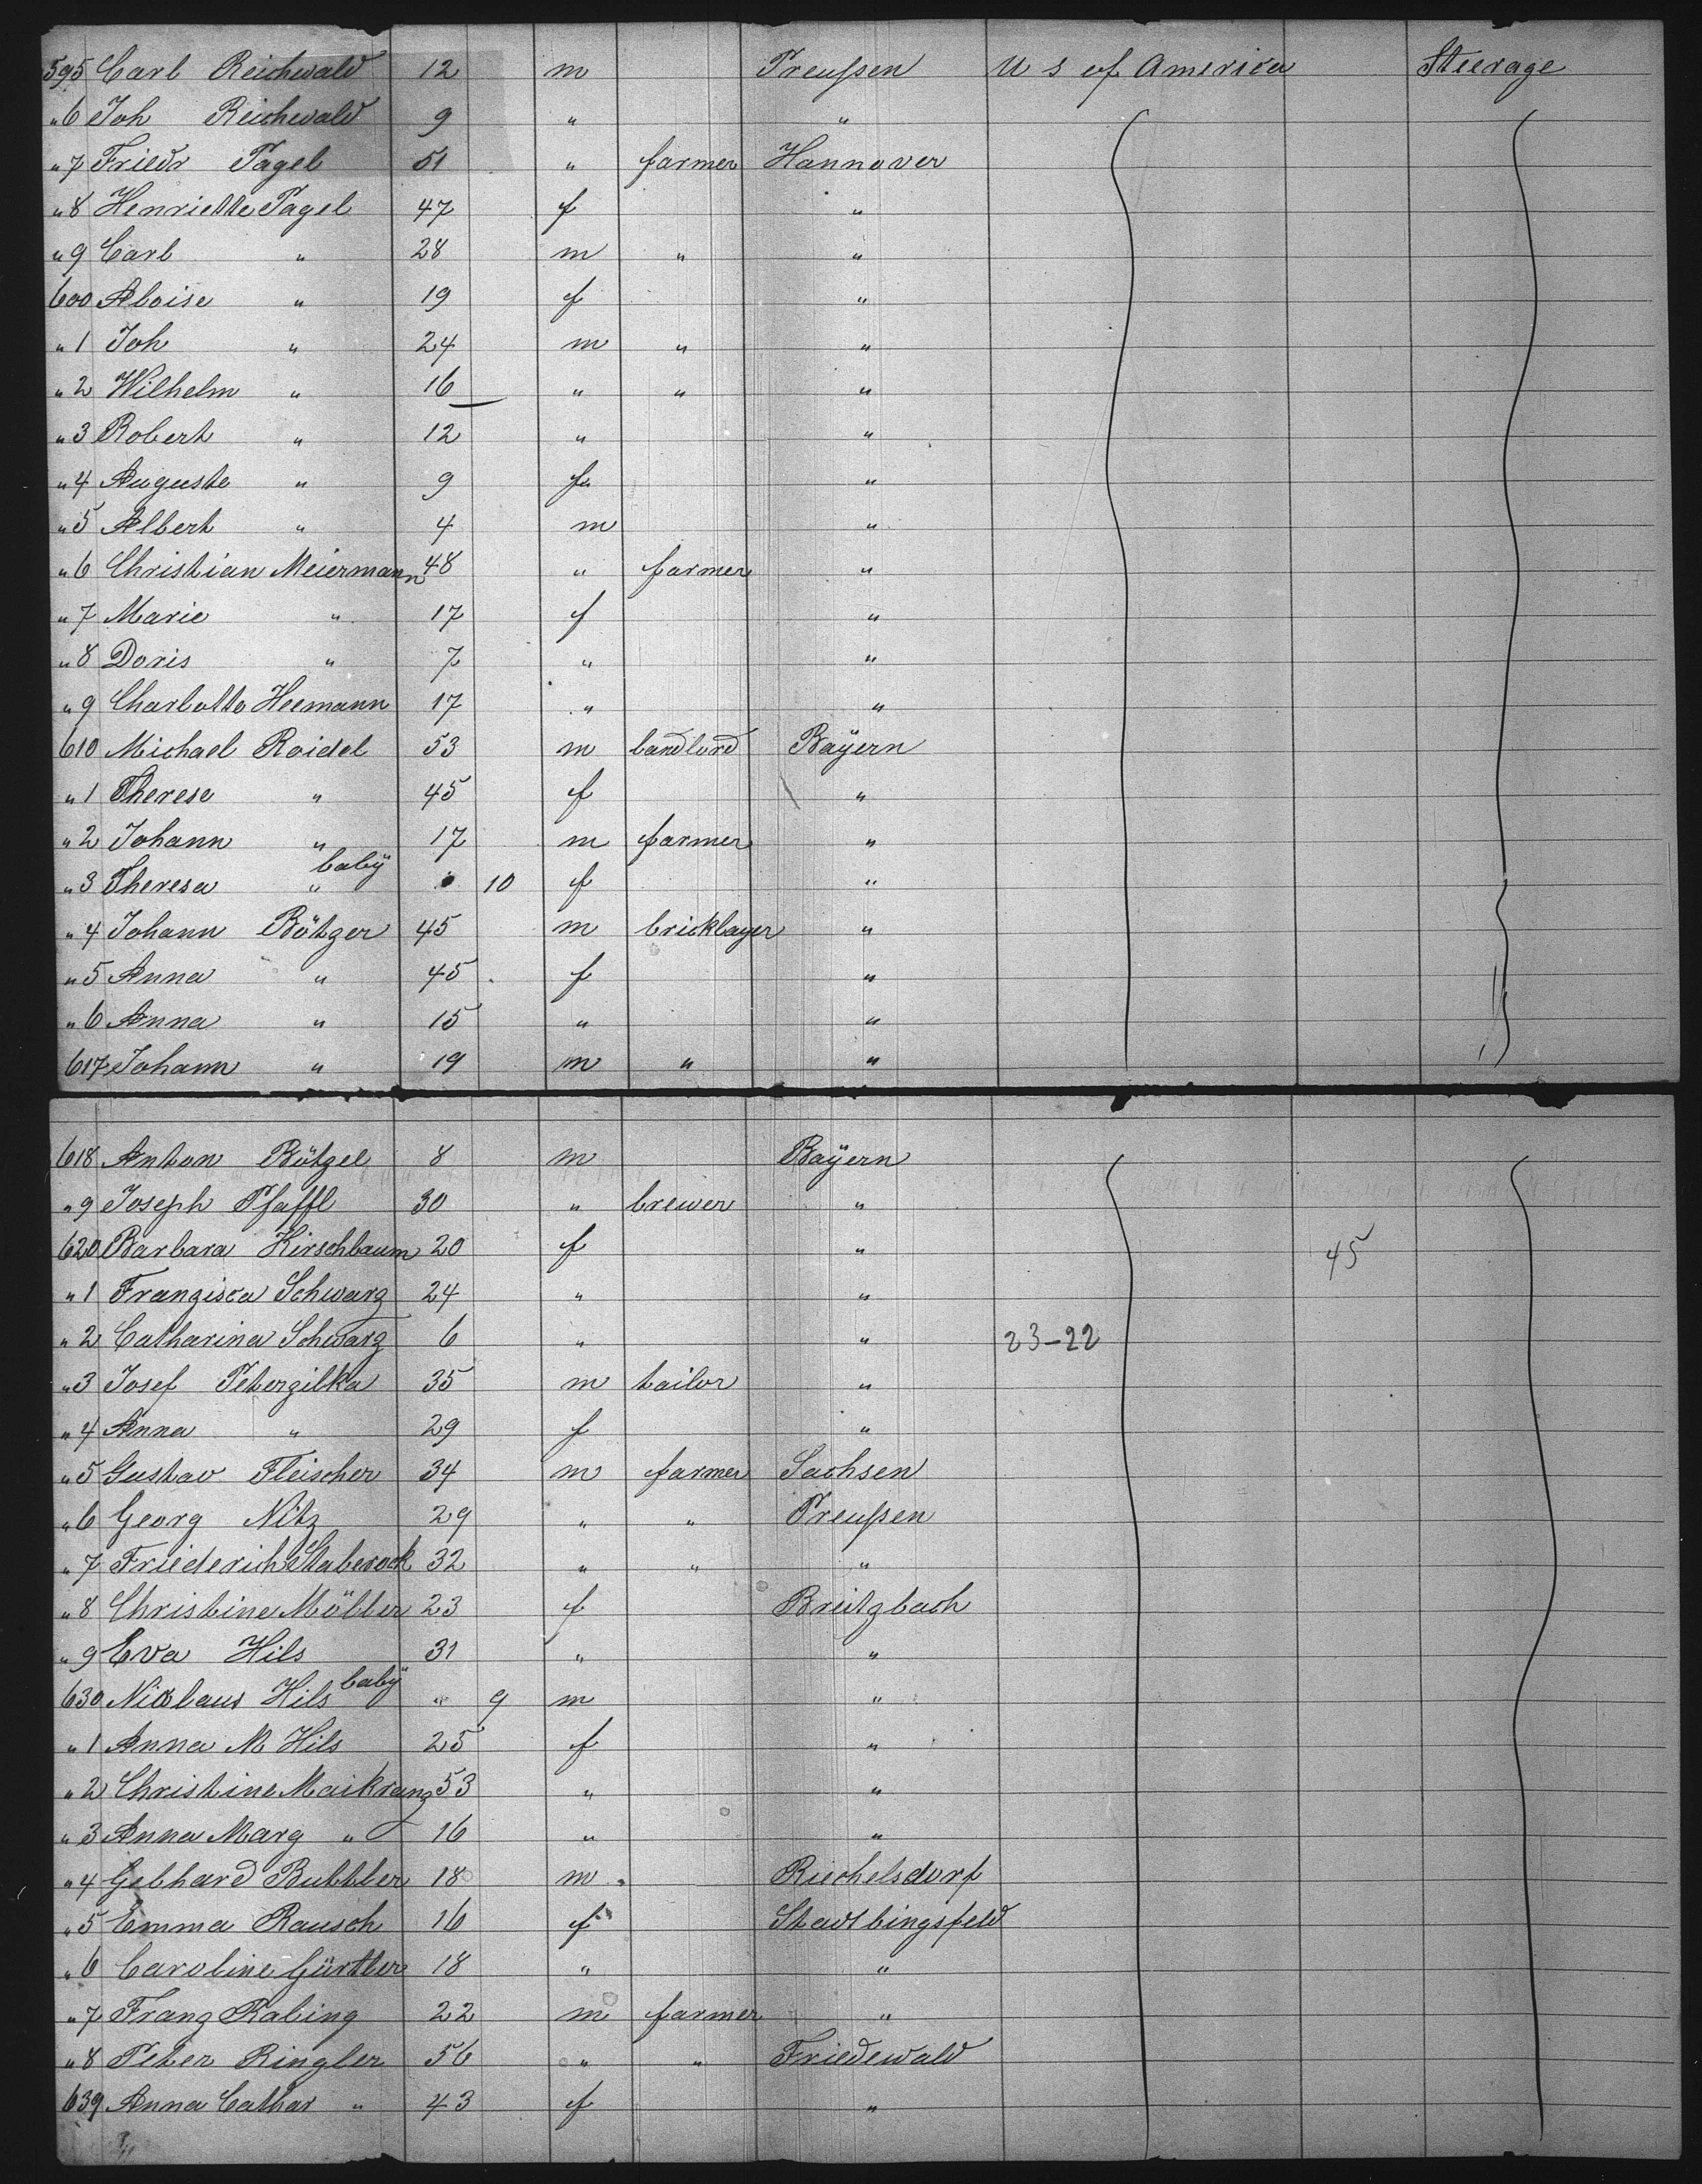 595 Carl Reichwald 12 m Preußen U S of America Steerage
"6 Joh Reichwald 9 " "
"7 Friedr Pagel 51 " farmer Hannover
"8 Henriette Pagel 47 f "
"9 Carl " 28 m " "
600 Aloise " 19 f "
"1 Joh " 24 m " "
"2 Wilhelm " 16 " " "
"3 Robert " 12 " "
"4 Auguste " 9 f "
"5 Albert " 4 m "
"6 Christian Meiermann 48 " farmer "
"7 Marie " 17 f "
"8 Doris " 7 " "
"9 Charlotte Heemann 17 " "
610 Michael Roidel 53 m landlord Bayern
"1 Therese " 45 f "
"2 Johann " 17 m farmer "
"3 Theresa " baby 10 f "
"4 Johann Bötzer 45 m bricklayer "
"5 Anna " 45 f "
"6 Anna " 15 " "
617 Johann " 19 m " "
618 Anton Bötzel 8 m Bayern
"9 Joseph Pfaffl 30 " brewer "
620 Barbara Kirschbaum 20 f " 45
"1 Franzisca Schwarz 24 " "
"2 Catharina Schwarz 6 " " 23-22
"3 Josef Peterzilka 35 m tailor "
"4 Anna " 29 f "
"5 Gustav Fleischer 34 m farmer Sachsen
"6 Georg Nitz 29 " " Preußen
"7 Friederich Staberock 32 " " "
"8 Christine Möller 23 f Breitzbach
"9 Eva Hils 31 " "
630 Nicolaus Hils baby " 9 m "
"1 Anna M Hils 25 f "
"2 Christine Maikranz 53 " "
"3 Anna Marg " 16 " "
"4 Gebhard Buttler 18 m Riechelsdorf
"5 Emma Rausch 16 f Stadtlingsfeld
"6 Caroline Gürtler 18 " "
"7 Franz Rabing 22 m farmer "
"8 Peter Ringler 56 " " Friedewald
639 Anna Cathar " 43 f "